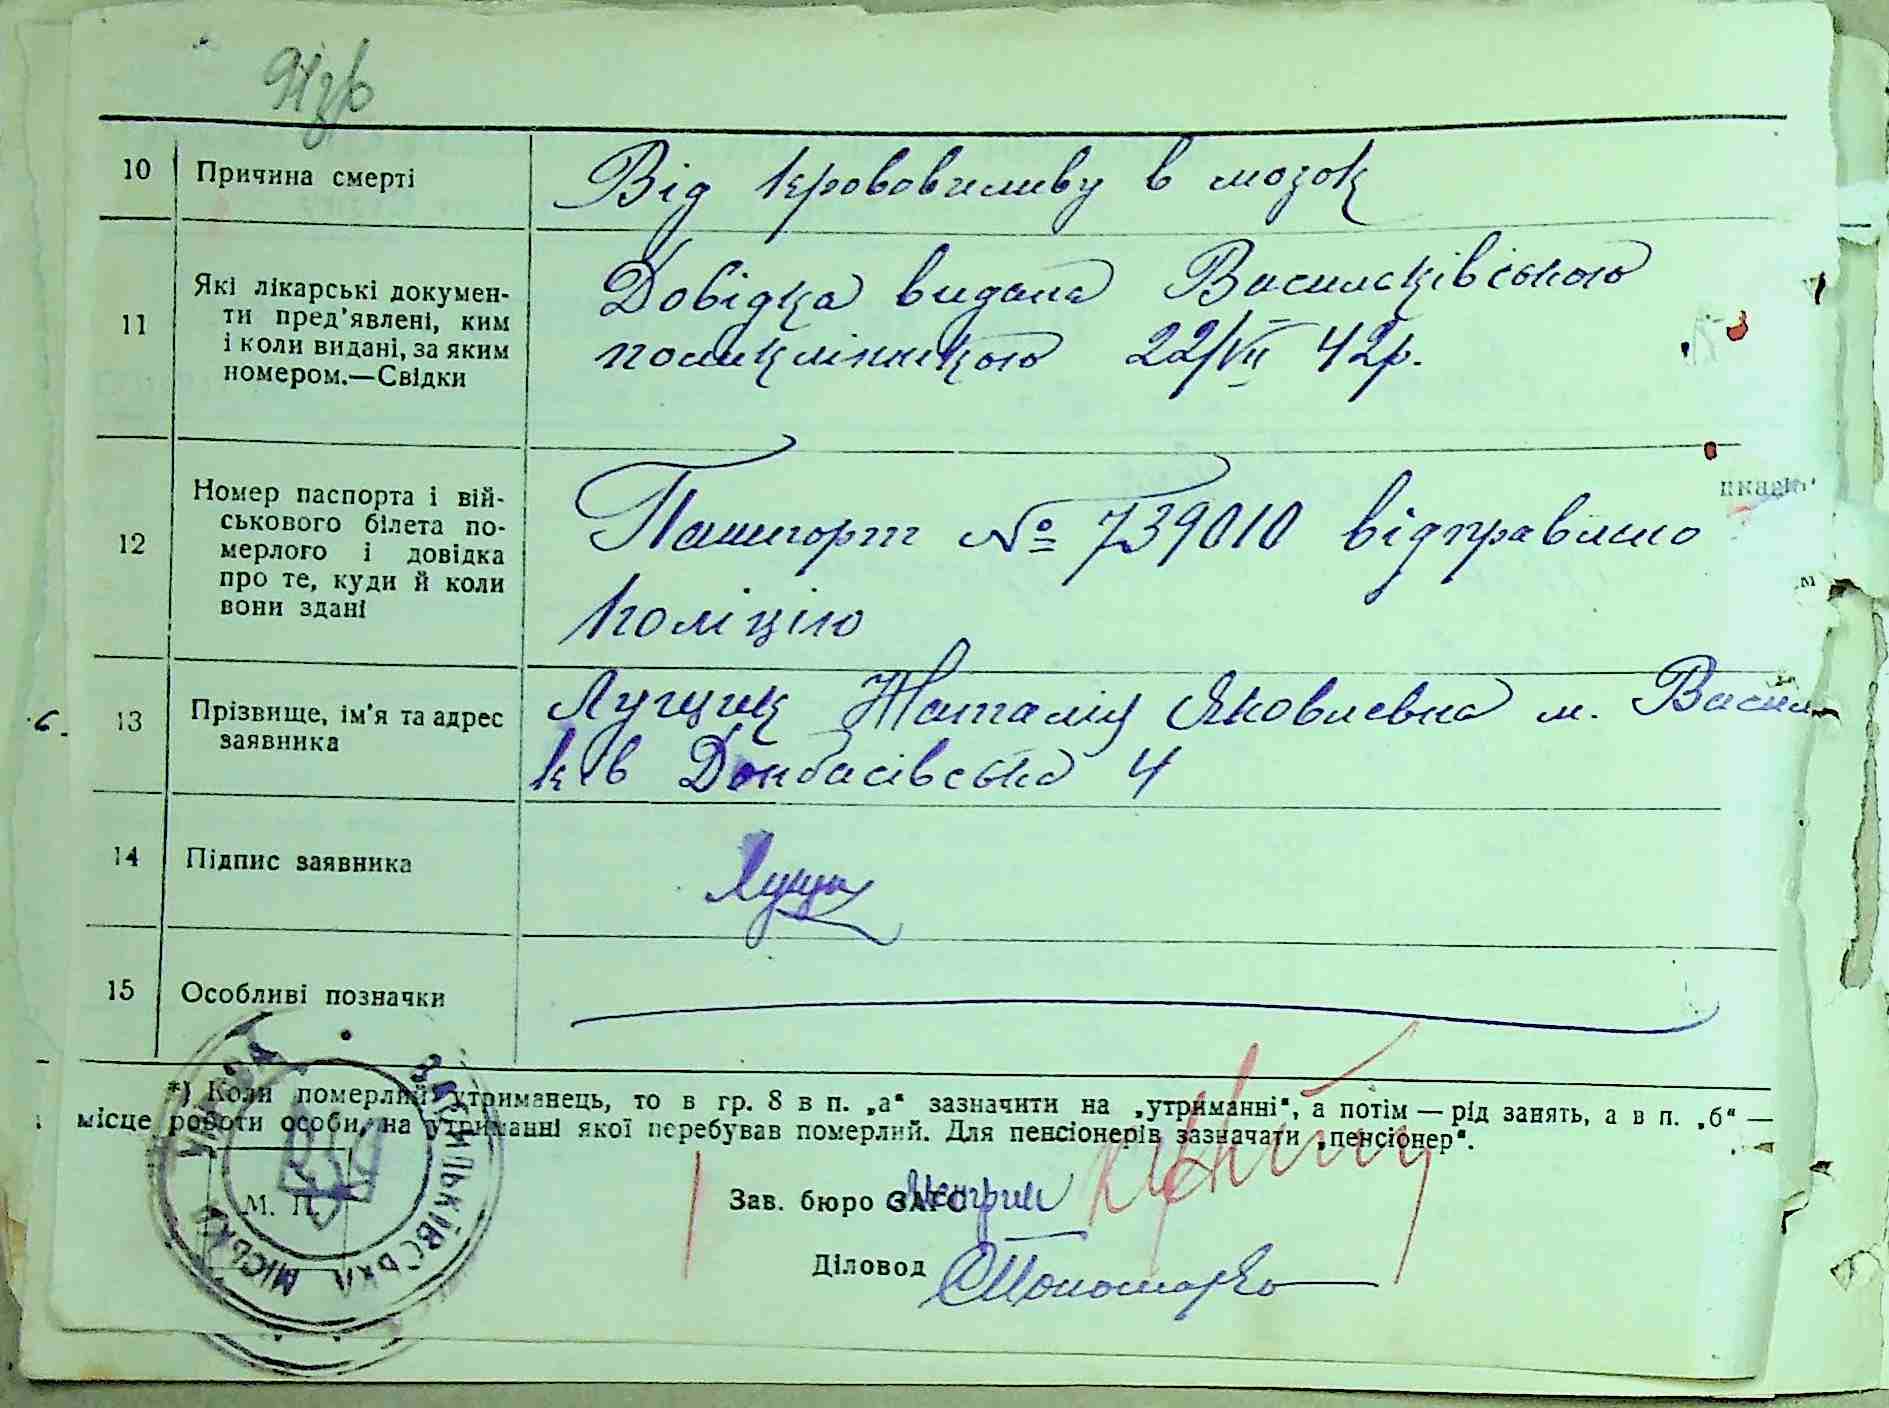 10 Причина смерті
Від крововиливу в мозок
11 Які лікарські докумен-
ти пред'явлені, ким
і коли видані, за яким
номером.—Свідки
Довідка видана Василсківською
поликлінікою 22/VII 42р.
12 Номер паспорта і вій-
ськового білета по-
мерлого і довідка
про те, куди й коли
вони здані
Пашпорт № 739010 відправлено
поліцію
13 Прізвище, ім'я та адрес
заявника
Наталія Яковлевна м. Васил-
ків Донбасівська 4
14 Підпис заявника
15 Особливі позначки
*) Коли померлий утриманець, то в гр. 8 в п. „а" зазначити на „утриманні", а потім — рід занять, а в п. „б" —
місце роботи особи, на утриманні якої перебував померлий. Для пенсіонерів зазначати „пенсіонер".
УПРАВА ВАСИЛЬКІВСЬКА МІСЬКА
М. П.
Зав. бюро ЗАГС
Діловод Пономарко